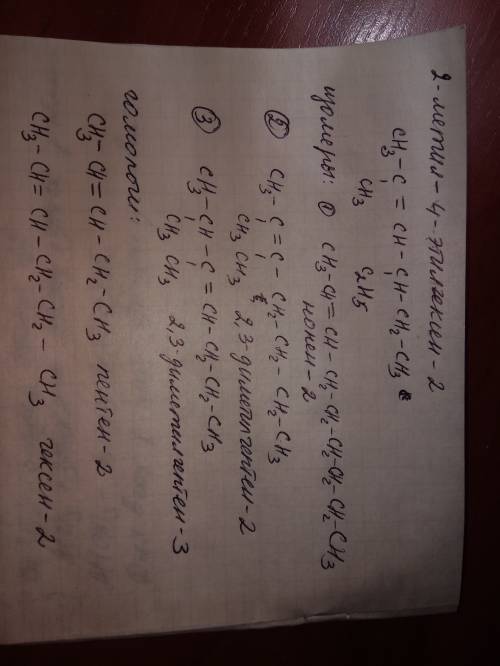 2-метил-4-этилгексен-2
CH₃-C=CH-CH-CH₂-CH₃
CH₃ C₂H₅
изомеры: ① CH₃-CH=CH-CH₂-CH₂-CH₂-CH₂-CH₂-CH₃
нонен-2
② CH₃-C=C-CH₂-CH₂-CH₂-CH₃
CH₃ CH₃ 2,3-диметилгептен-2
③ CH₃-CH-C=CH-CH₂-CH₂-CH₃
CH₃ CH₃ 2,3-диметилгептен-3
гомологи:
CH₃-CH=CH-CH₂-CH₃ пентен-2
CH₃-CH=CH-CH₂-CH₂-CH₃ гексен-2